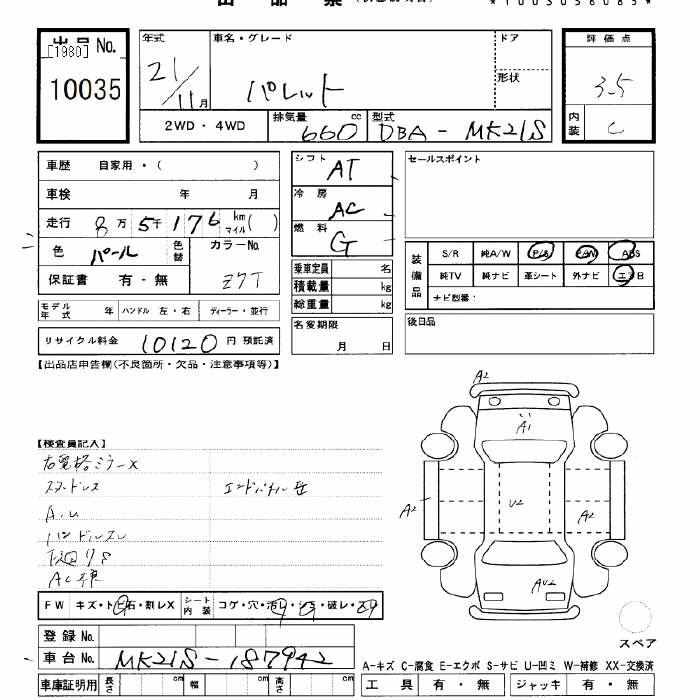 出品票
*1003056085*
出品No.
[1980]
10035
年式 21/11月
車名・グレード パレット
ドア
形状
評価点 3.5
内装 C
2WD・4WD
排気量 660 cc
型式 DBA-MK21S
車歴 自家用・( )
車検 年 月
走行 8万5千176 km マイル( )
色 パール 色替
カラーNo. Z7T
保証書 有・無
モデル年式 年 ハンドル 左・右 ディーラー・並行
リサイクル料金 10120 円 預託済
シフト AT
冷房 AC
燃料 G
乗車定員 名
積載量 kg
総重量 kg
名変期限 月 日
セールスポイント
装備品 S/R 純A/W P/S P/W ABS
純TV 純ナビ 革シート 外ナビ エアB
ナビ型番:
後日品
【出品店申告欄(不良箇所・欠品・注意事項等)】
【検査員記入】
右電格ミラーX
A.U
ハンドルスレ
AC
FW キズ・トビ石・割レX シート内装 コゲ・穴・汚レ・シミ・破レ・スレ
A2
A1
A2
U2
A2
AU2
スペア
登録No.
車台No. MK21S-187942
車庫証明用 長さ cm 幅 cm 高さ cm
A-キズ C-腐食 E-エクボ S-サビ U-凹ミ W-補修 XX-交換済
工具 有・無 ジャッキ 有・無